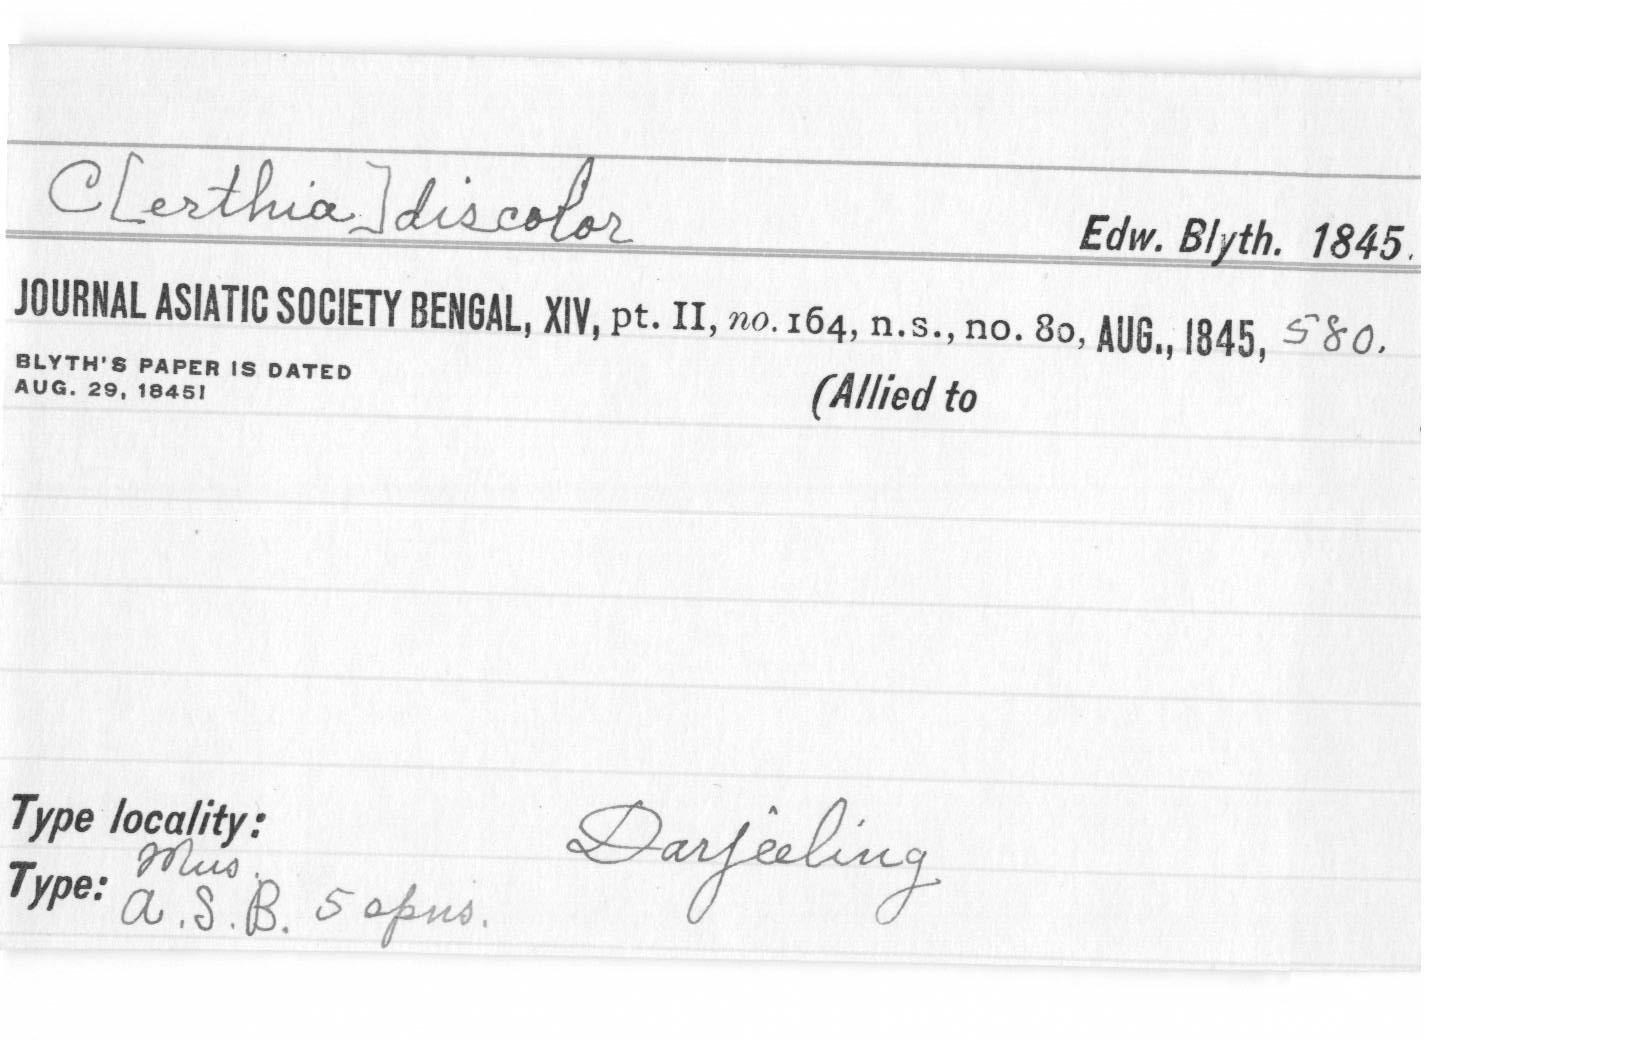 C[erthia] discolor
Edw. Blyth. 1845.
JOURNAL ASIATIC SOCIETY BENGAL, XIV, pt. II, no. 164, n.s., no. 80, AUG., 1845, 580.
BLYTH'S PAPER IS DATED
AUG. 29, 1845!
(Allied to
Type locality: Darjêeling
Type: Mus.
A.S.B. 5 spns.